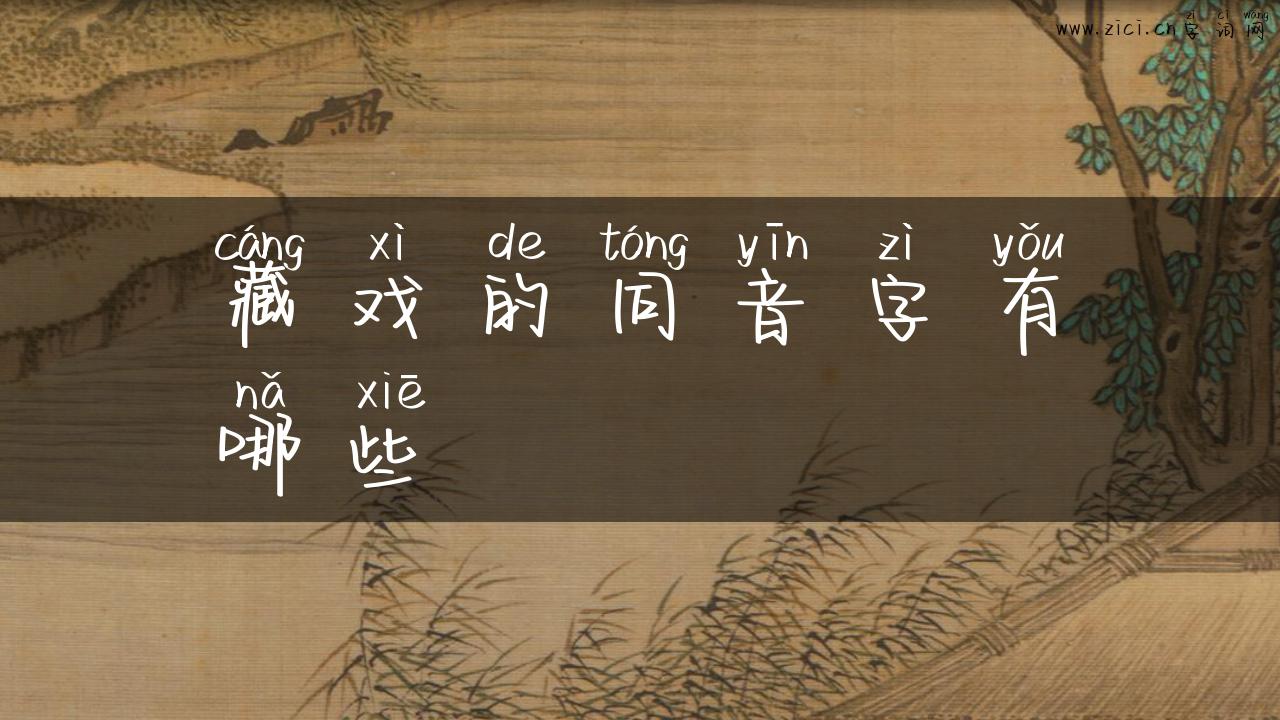 zì cí wǎng
www.zici.cn字词网
cáng xì de tóng yīn zì yǒu
藏戏的同音字有
nǎ xiē
哪些